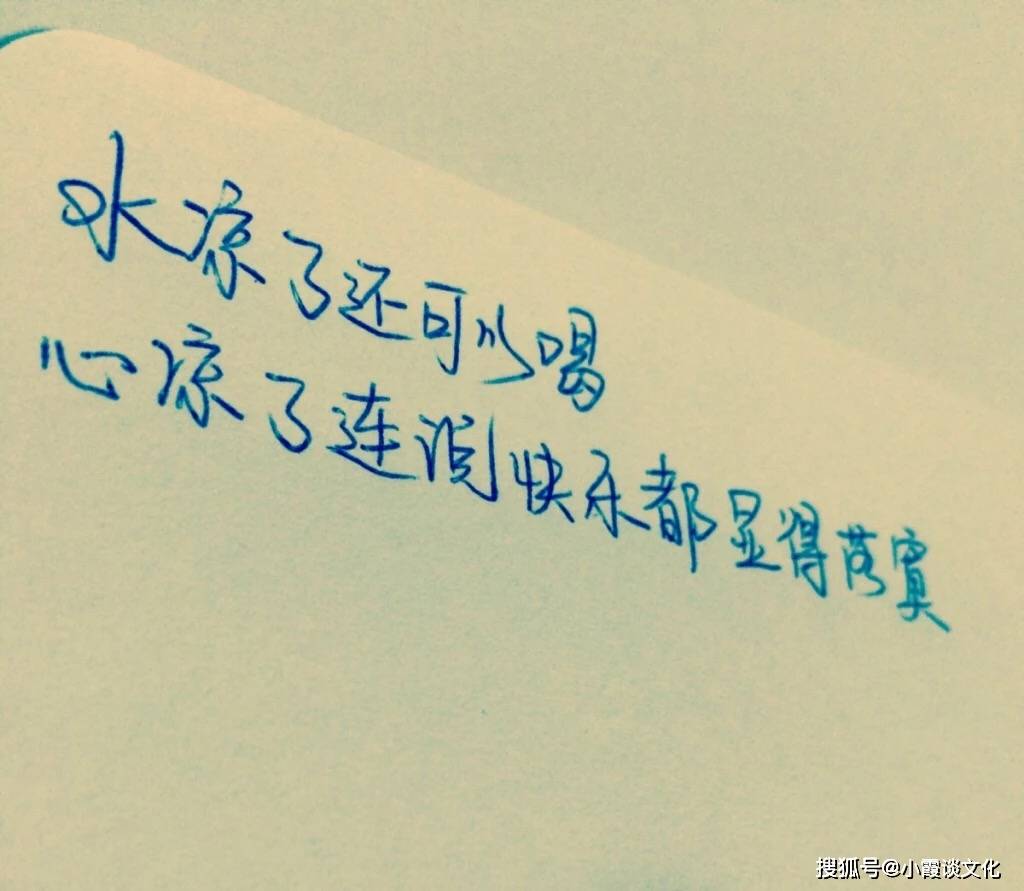 水凉了还可以喝
心凉了连快乐都显得落寞
搜狐号@小霞谈文化